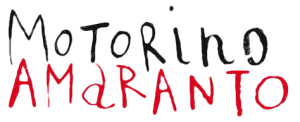 MOTORinO
AMaRANTO